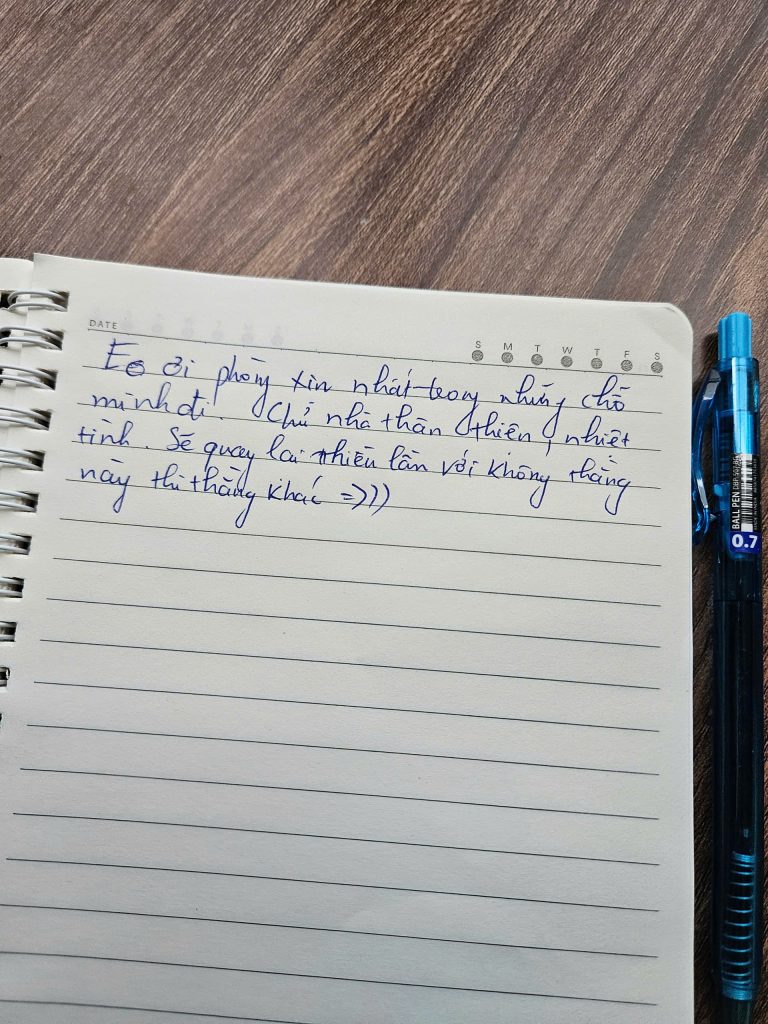 DATE
S M T W T F S
Eo ơi phòng xịn nhất trong những chỗ
mình đi. Chủ nhà thân thiện, nhiệt
tình. Sẽ quay lại nhiều lần với không thằng
này thì thằng khác =)))
BALL PEN
0.7